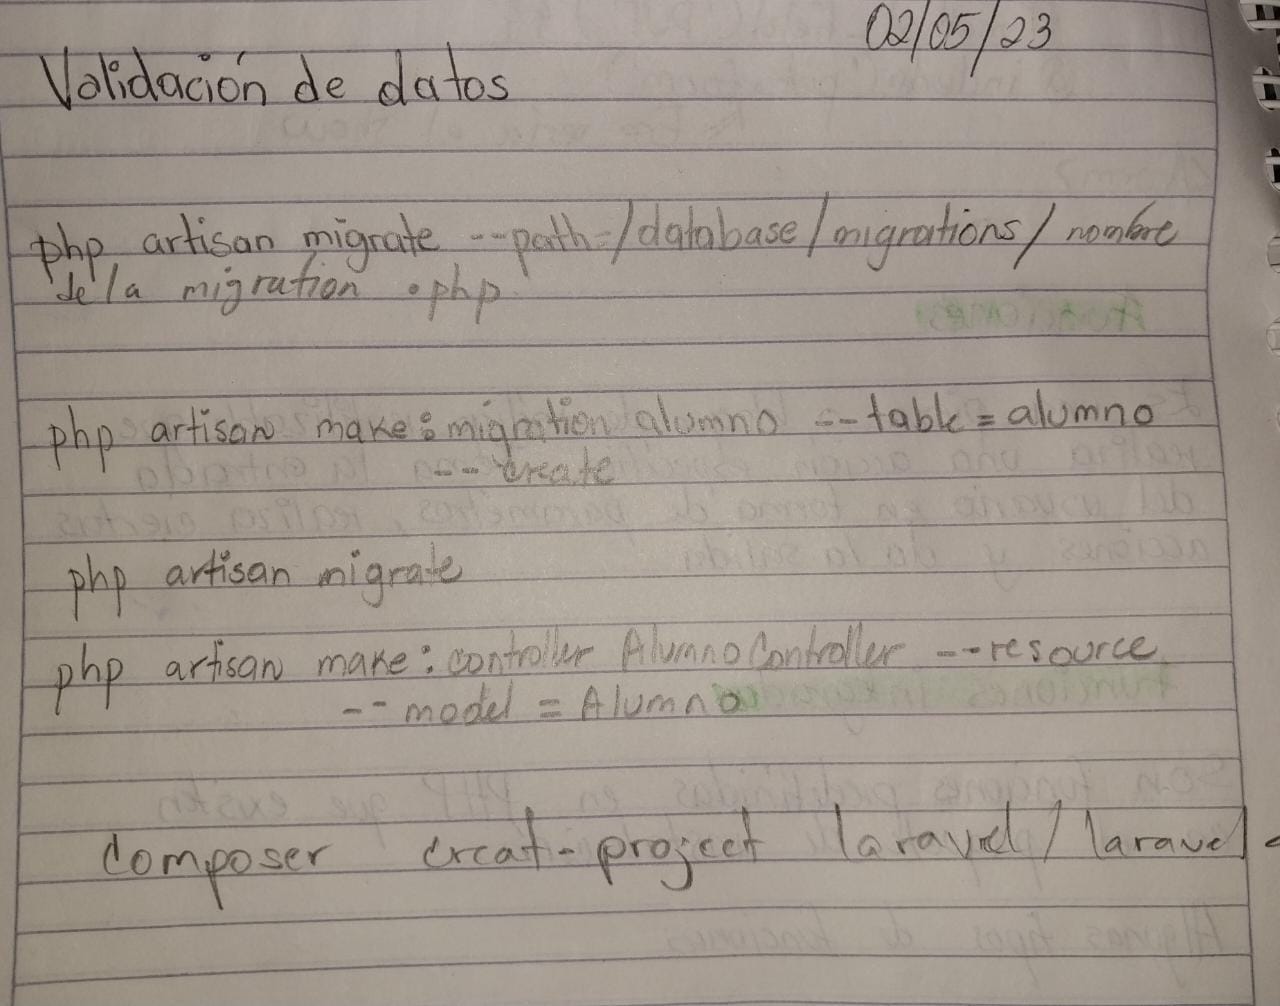 02/05/23
Validación de datos
php artisan migrate --path=/database/migrations/nombre
de la migration .php
php artisan make: migration alumno --table = alumno
--create
php artisan migrate
php artisan make: controller AlumnoController --resource
-- model = Alumno
composer creat-project laravel/laravel